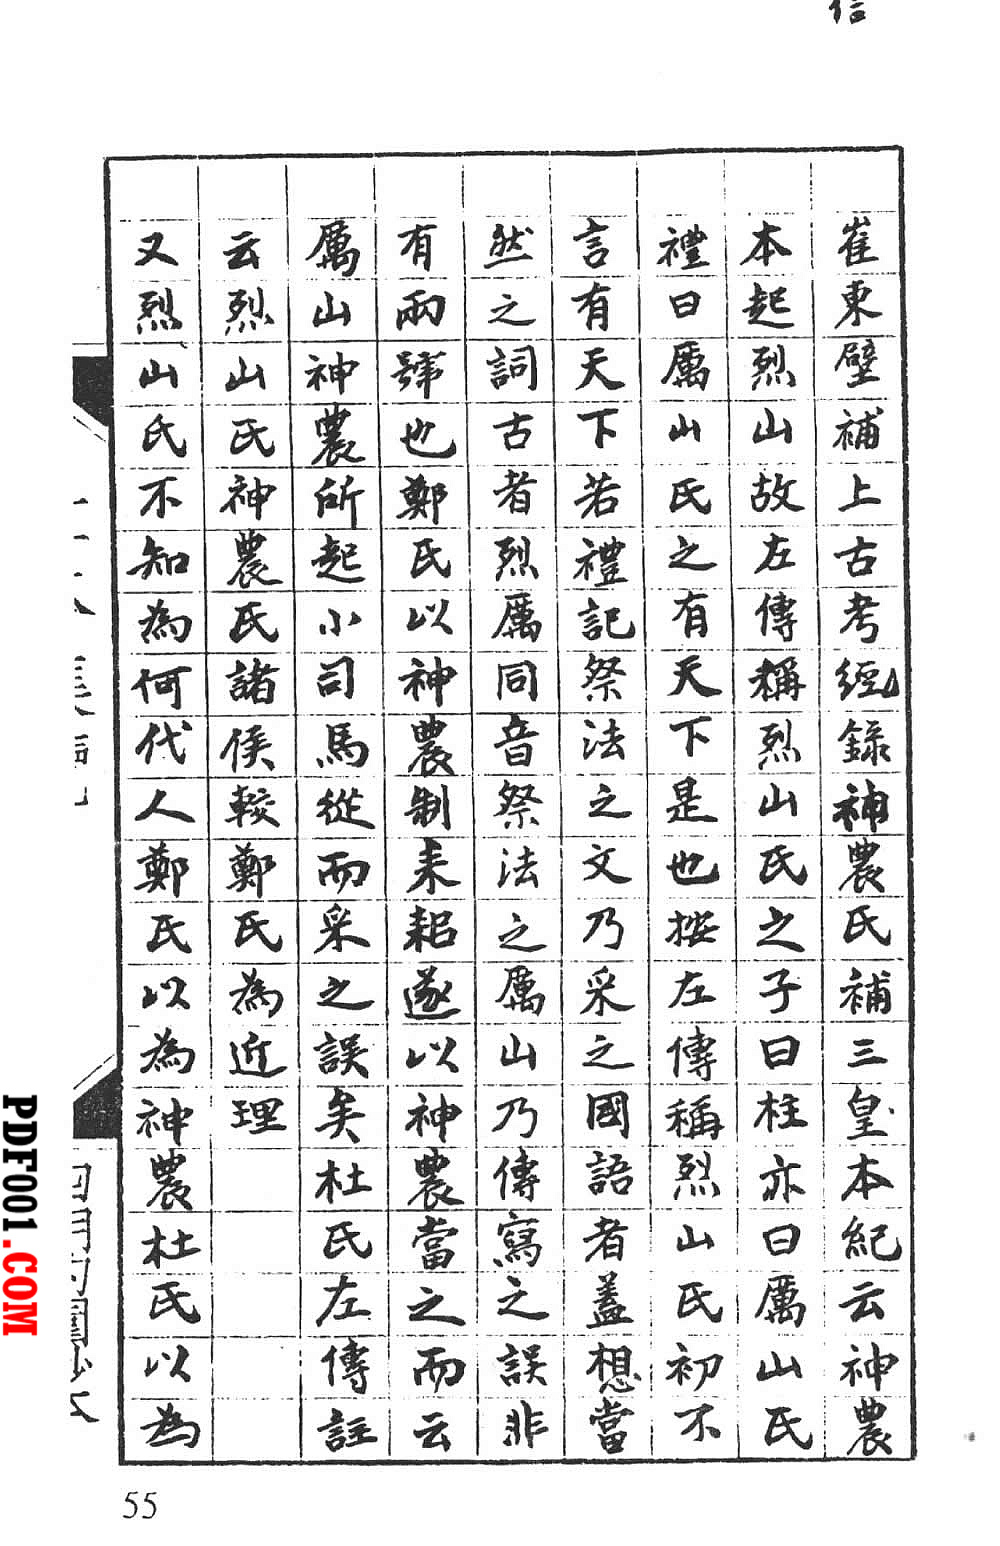 崔東壁補上古考經錄神農氏補三皇本紀云神農
本起烈山故左傳稱烈山氏之子曰柱亦曰厲山氏
禮曰厲山氏之有天下是也按左傳稱烈山氏初不
言有天下若禮記祭法之文乃采之國語者蓋想當
然之詞古者烈厲同音祭法之厲山乃傳寫之誤非
有兩號也鄭氏以神農制耒耜遂以神農當之而云
厲山神農所起小司馬從而采之誤矣杜氏左傳註
云烈山氏神農氏諸侯較鄭氏為近理
又烈山氏不知為何代人鄭氏以為神農杜氏以為
55
PDF001.COM